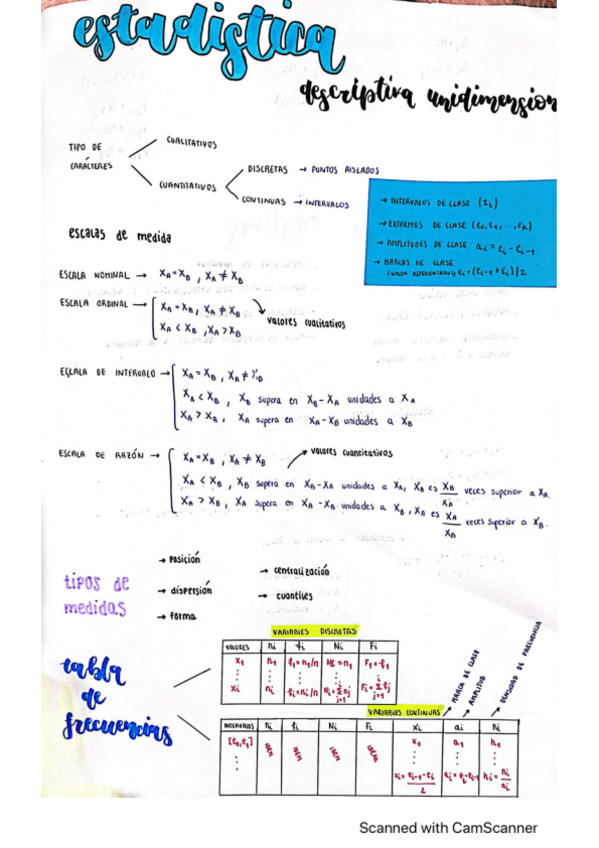 estadistica
descriptiva unidimension
TIPO DE CARÁCTERES
CUALITATIVOS
CUANTITATIVOS
DISCRETAS → PUNTOS AISLADOS
CONTINUAS → INTERVALOS
→ INTERVALOS DE CLASE (Ii)
→ EXTREMOS DE CLASE (e0, e1, ..., ek)
→ AMPLITUDES DE CLASE ai = ei - ei-1
→ MARCAS DE CLASE
(VALOR REPRESENTATIVO) xi = (ei-1 + ei)/2
escalas de medida
ESCALA NOMINAL → XA = XB , XA ≠ XB
ESCALA ORDINAL → XA = XB , XA ≠ XB
XA < XB , XA > XB
valores cualitativos
ESCALA DE INTERVALO → XA = XB , XA ≠ XB
XA < XB , XB supera en XB - XA unidades a XA
XA > XB , XA supera en XA - XB unidades a XB
ESCALA DE RAZÓN → XA = XB , XA ≠ XB
valores cuantitativos
XA < XB , XB supera en XB - XA unidades a XA, XB es XB/XA veces superior a XA.
XA > XB , XA supera en XA - XB unidades a XB, XA es XA/XB veces superior a XB.
tipos de medidas
→ posición
→ dispersión
→ forma
→ centralización
→ cuantiles
tabla de frecuencias
VARIABLES DISCRETAS
VALORES ni fi Ni Fi
x1 n1 f1 = n1/n N1 = n1 F1 = f1
xi ni fi = ni/n Ni = Σ nj j=1 Fi = Σ fj j=1
VARIABLES CONTINUAS
MARCA DE CLASE
AMPLITUD
DENSIDAD DE FRECUENCIA
INTERVALOS ni fi Ni Fi xi ai hi
[e0, e1] IDEM IDEM IDEM IDEM x1 a1 h1
xi = ei-1 - ei / 2 ai = ei - ei-1 hi = ni/ai
Scanned with CamScanner